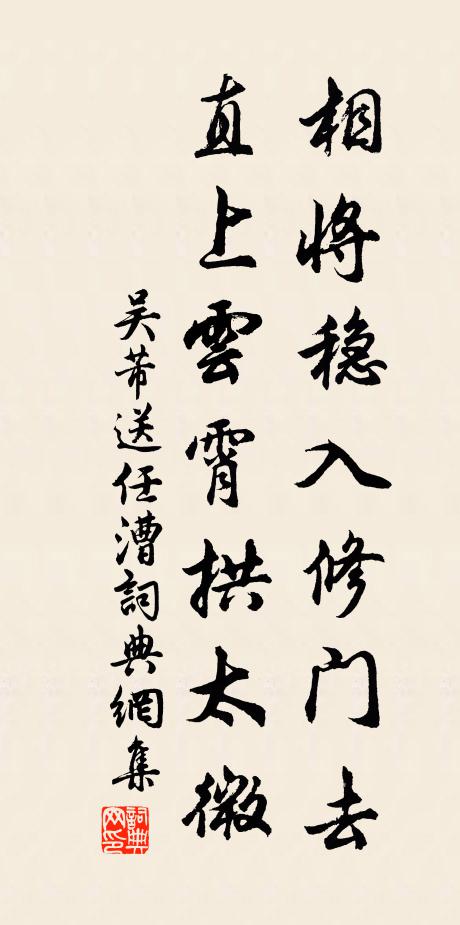 相将稳入修门去
直上雲霄拱太微
吴芾送任漕詞典網集
詞典网印